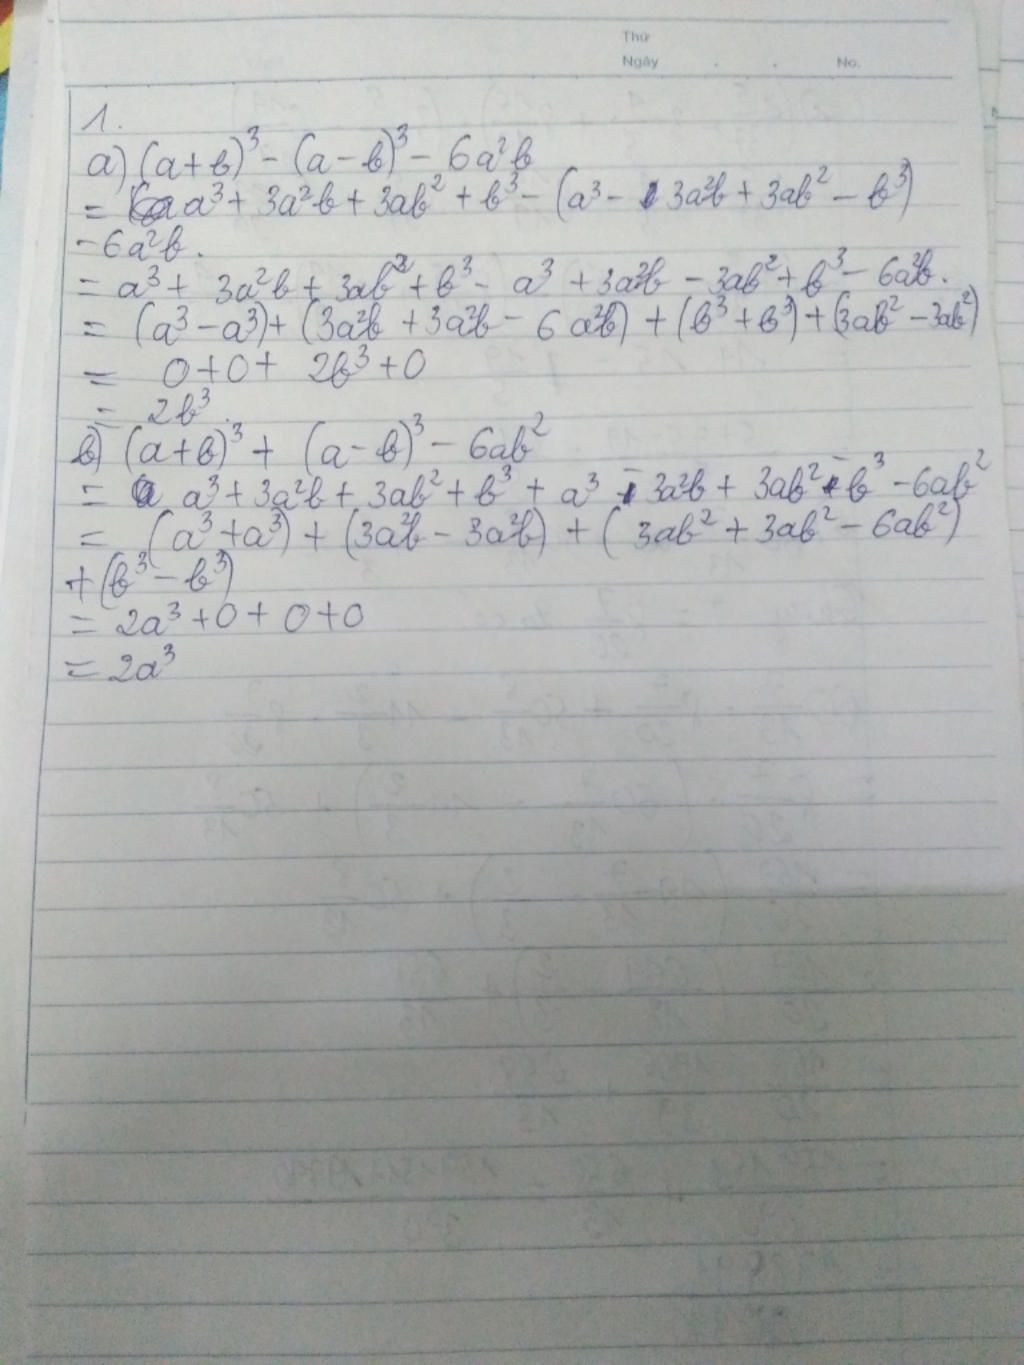 Thứ
Ngày . . No.
1.
a) (a+b)³ - (a-b)³ - 6a²b
= a³ + 3a²b + 3ab² + b³ - (a³ - 3a²b + 3ab² - b³)
- 6a²b.
= a³ + 3a²b + 3ab² + b³ - a³ + 3a²b - 3ab² + b³ - 6a²b.
= (a³ - a³) + (3a²b + 3a²b - 6a²b) + (b³ + b³) + (3ab² - 3ab²)
= 0 + 0 + 2b³ + 0
= 2b³.
b) (a+b)³ + (a-b)³ - 6ab²
= a³ + 3a²b + 3ab² + b³ + a³ - 3a²b + 3ab² - b³ - 6ab²
= (a³ + a³) + (3a²b - 3a²b) + (3ab² + 3ab² - 6ab²)
+ (b³ - b³)
= 2a³ + 0 + 0 + 0
= 2a³